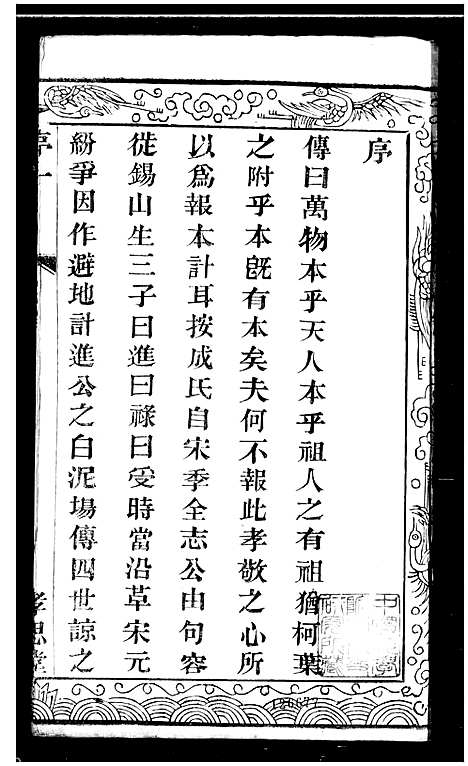 序
傳曰萬物本乎天人本乎祖人之有祖猶柯葉
之附乎本旣有本矣夫何不報此孝敬之心所
以爲報本計耳按成氏自宋季全志公由句容
徙錫山生三子曰進曰祿曰受時當沿革宋元
紛爭因作避地計進公之白泥場傳四世諒之
序一
孝思堂